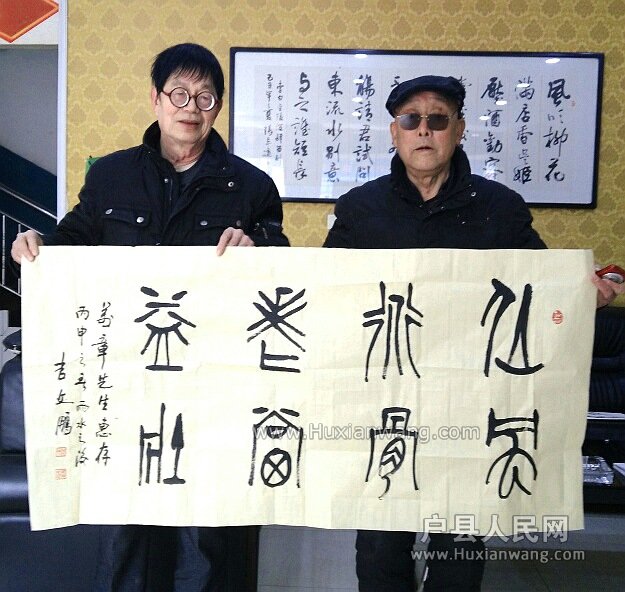 風吹柳花
滿店香吳姬
壓酒勸客
觴請君試問
東流水別意
與之誰短長
仙風
道骨
老當
益壯
萬章先生惠存
丙申之春雨水之後
吉文鵬
www.Huxianwang.com
户县人民网
www.Huxianwang.com